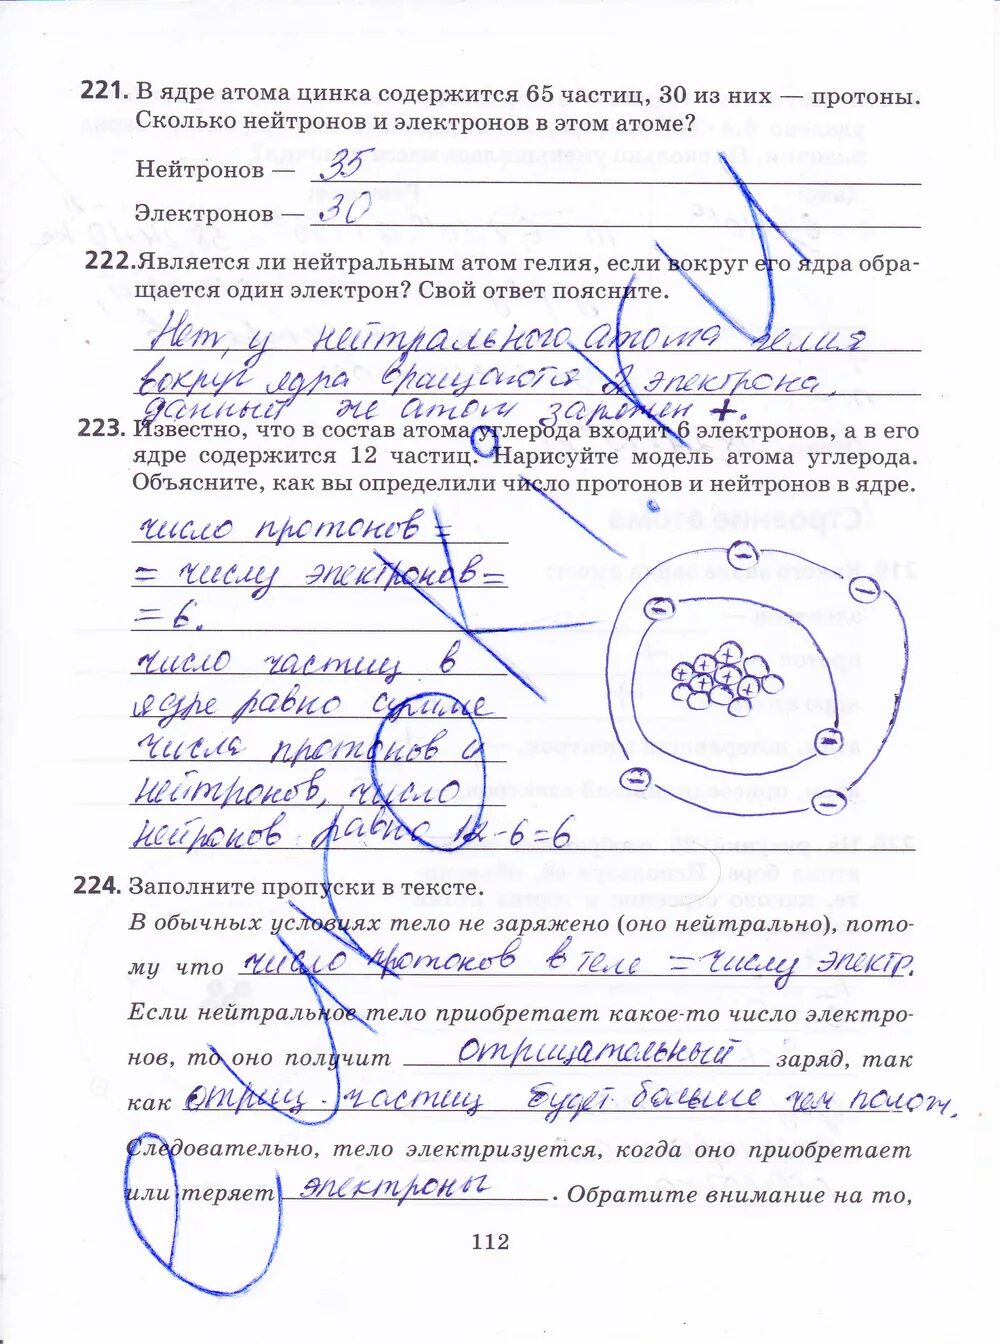 221. В ядре атома цинка содержится 65 частиц, 30 из них — протоны.
Сколько нейтронов и электронов в этом атоме?
Нейтронов — 35
Электронов — 30
222. Является ли нейтральным атом гелия, если вокруг его ядра обра-
щается один электрон? Свой ответ поясните.
Нет, у нейтрального атома гелия
вокруг ядра вращаются 2 электрона,
данный же атом заряжен +.
223. Известно, что в состав атома углерода входит 6 электронов, а в его
ядре содержится 12 частиц. Нарисуйте модель атома углерода.
Объясните, как вы определили число протонов и нейтронов в ядре.
число протонов =
= числу электронов =
= 6.
число частиц в
ядре равно сумме
числа протонов и
нейтронов, число
нейронов равно 12-6=6
224. Заполните пропуски в тексте.
В обычных условиях тело не заряжено (оно нейтрально), пото-
му что число протонов в теле = числу электр.
Если нейтральное тело приобретает какое-то число электро-
нов, то оно получит отрицательный заряд, так
как отриц. частиц будет больше чем полож.
Следовательно, тело электризуется, когда оно приобретает
или теряет электроны. Обратите внимание на то,
112